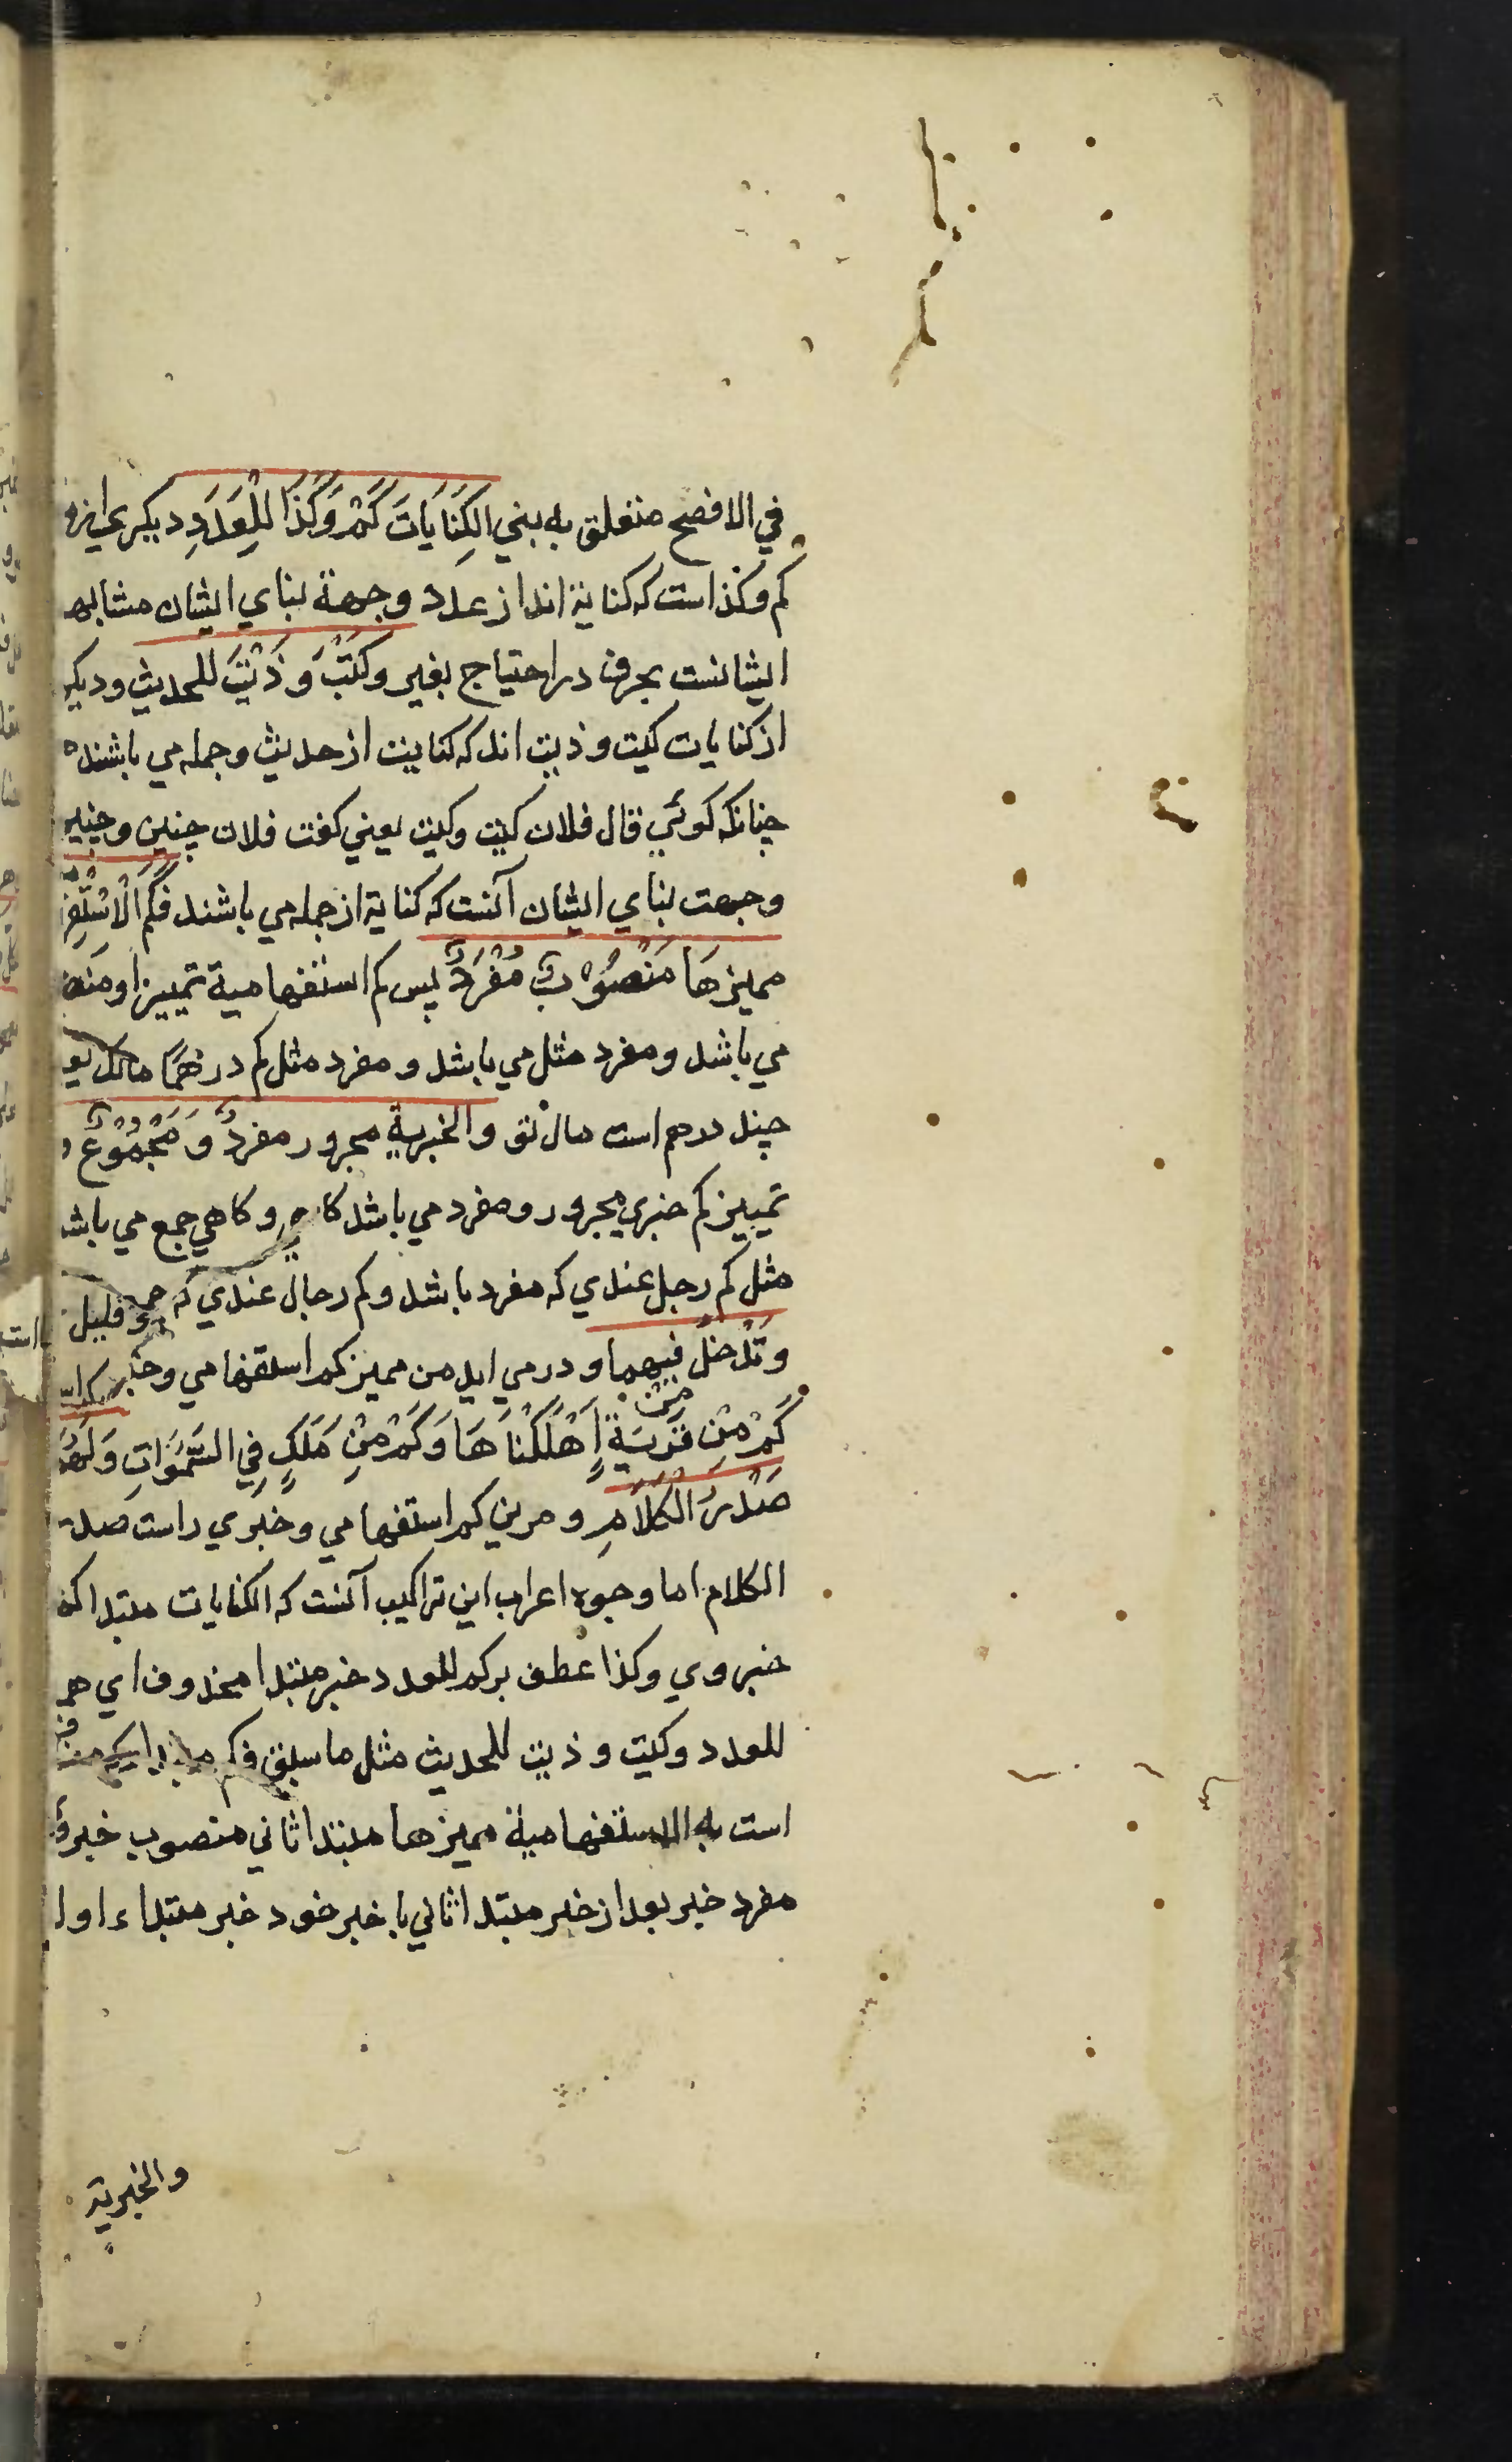 في الافصح متعلق به بني الكِنَايَاتَ كَمْ وَكَذَا لِلْعَدَدِ ديكري از
كم وكذا است كه كناية اند از عدد وجهة بناي ايشان مشابه
ايشانست بحرف در احتياج بغير وكَيْتَ وَذَيْتَ للحديث وديكر
از كنايات كيت وذيت اند كه كنايت از حديث وجمله مي باشند
چنانكه كوئي قال فلان كيت وكيت يعني كفت فلان چنين وچنين
وجهت بناي ايشان آنست كه كناية از جمله مي باشند فَكَمْ الْاسْتِفْ
مميزهَا مَنْصُوْبٌ مُفْرَدٌ پس كم استفهامية تمييز او منص
مي باشد ومفرد مثل مي باشد ومفرد مثل كم درهمًا مالك يع
چند درهم است مال تو والخبرية مجرور مفردٌ وَمَجْمُوْعٌ و
تمييز كم خبري مجرور ومفرد مي باشد كاهي وكاهي جمع مي باش
مثل كم رجل عندي كه مفرد باشد وكم رجال عندي كه
وَتَدْخُلُ فيهما ودر مي ايد من مميز كم استفهامي وخبر
كَمْ مِنْ قَرْيَةٍ اَهْلَكْنَاهَا وَكَمْ مِنْ مَلَكٍ فِي السَّمٰوَاتِ وَلَهُمَا
صَدْرُ الْكَلَامِ ومرين كم استفهامي وخبري راست صد
الكلام اما وجوه اعراب اين تراكيب آنست كه الكنايات مبتدا كم
خبر وي وكذا عطف بركم للعدد خبر مبتدا محذوف اي هم
للعدد وكيت وذيت للحديث مثل ما سبق فكم
است به الاستفهامية مميزها مبتدا ثاني منصوب خبر و
مفرد خبر بعد از خبر مبتدا ثاني با خبر خود خبر مبتداء اول
والخبرية